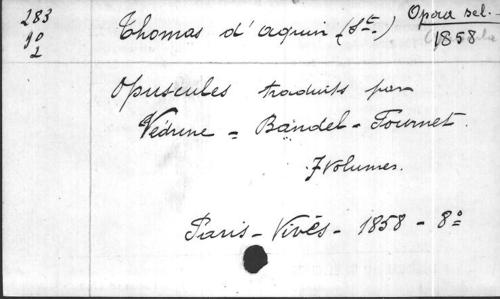 283
90
2
Thomas d'Aquin (St.)
Opera sel.
1858
Opuscules traduits par
Védrine = Bandel = Fournet.
7 volumes.
Paris - Vivès - 1858 - 8º